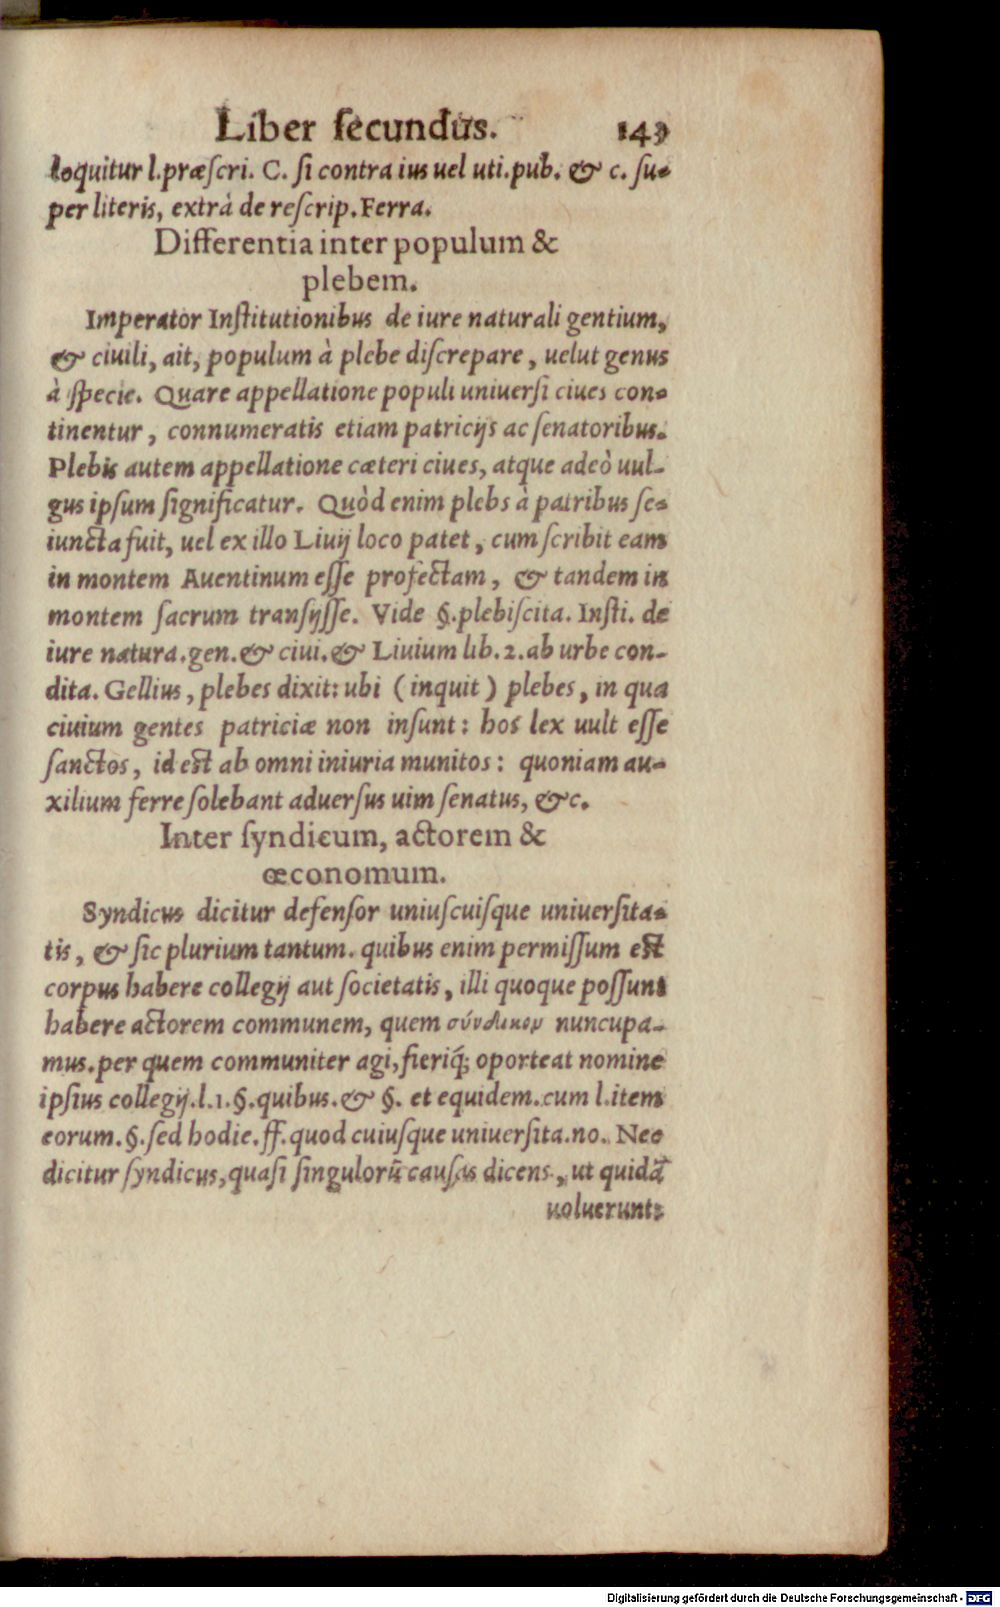 Liber ſecundus. 143
loquitur l.præſcri. C. ſi contra ius uel uti.pub. & c. ſu-
per literis, extrà de reſcrip.Ferra.
Differentia inter populum &
plebem.
Imperator Inſtitutionibus de iure naturali gentium,
& ciuili, ait, populum à plebe diſcrepare, uelut genus
à ſpecie. Quare appellatione populi uniuerſi ciues con-
tinentur, connumeratis etiam patricijs ac ſenatoribus.
Plebis autem appellatione cæteri ciues, atque adeò uul-
gus ipſum ſignificatur. Quòd enim plebs à patribus ſe-
iuncta fuit, uel ex illo Liuij loco patet, cum ſcribit eam
in montem Auentinum eſſe profectam, & tandem in
montem ſacrum tranſijſſe. Vide §.plebiſcita. Inſti. de
iure natura.gen.& ciui.& Liuium lib.2.ab urbe con-
dita. Gellius, plebes dixit: ubi (inquit) plebes, in qua
ciuium gentes patriciæ non inſunt: hos lex uult eſſe
ſanctos, id eſt ab omni iniuria munitos: quoniam au-
xilium ferre ſolebant aduerſus uim ſenatus, &c.
Inter ſyndicum, actorem &
œconomum.
Syndicus dicitur defenſor uniuſcuiſque uniuerſita-
tis, & ſic plurium tantum. quibus enim permiſſum eſt
corpus habere collegij aut ſocietatis, illi quoque poſſunt
habere actorem communem, quem σύνδικον nuncupa-
mus.per quem communiter agi, fieriq́; oporteat nomine
ipſius collegij.l.1.§.quibus.& §. et equidem.cum l.item
eorum.§.ſed hodie.ff.quod cuiuſque uniuerſita.no. Nec
dicitur ſyndicus,quaſi ſingulorũ cauſas dicens, ut quidã
uoluerunt:
Digitalisierung gefördert durch die Deutsche Forschungsgemeinschaft - DFG